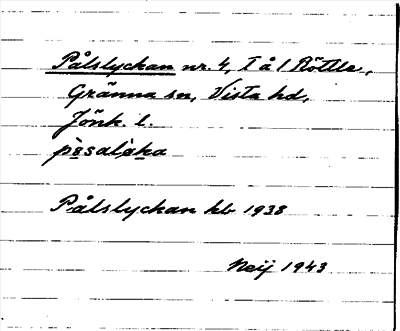 Pålslyckan nr. 4, I å 1 Röttle,
Gränna sn, Vista hd,
Jönk. l.
Pålslyckan kb 1938
Neij 1943